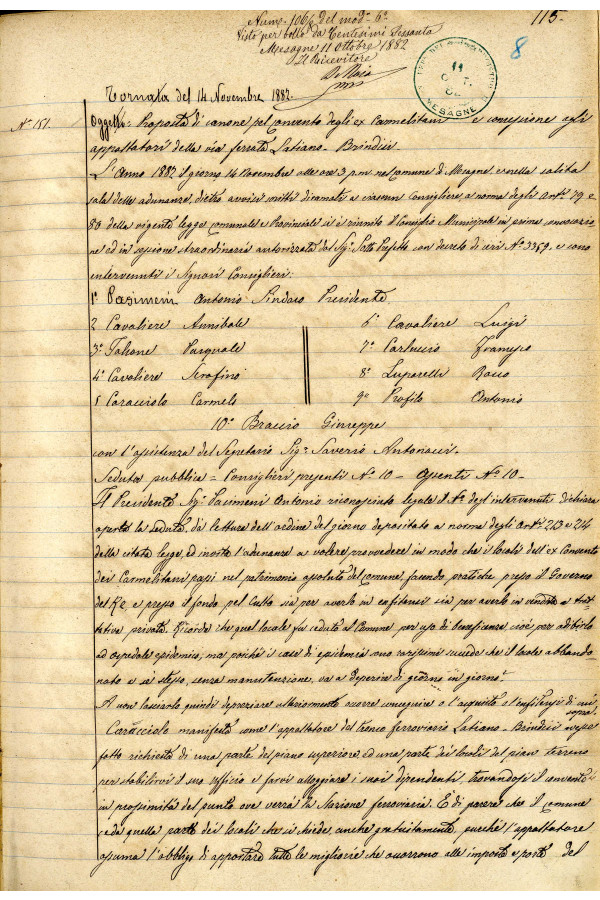 115.
Num. 106/2 del mod. 6°
Visto per bollo da Centesimi Sessanta
Mesagne 11 Ottobre 1882
Il Ricevitore
8
11
MESAGNE
Tornata del 14 Novembre 1882.
N° 151.
Oggetto: Proposta di canone pel convento degli ex Carmelitani e concessione agli
appaltatori della via ferrata Latiano-Brindisi.
L'Anno 1882 il giorno 14 Novembre alle ore 3 p.m. nel Comune di Mesagne e nella solita
sala delle adunanze, dietro avvisi scritti diramati a ciascun Consigliere, a norma degli Art.i 79 e
80 della vigente legge comunale e Provinciale si è riunito il Consiglio Municipale in prima convocazio
ne ed in sessione straordinaria autorizzata dal Sig. Sotto Prefetto con decreto di ieri N° 3359, e sono
intervenuti i Signori Consiglieri:
1° Pasimeni Antonio Sindaco Presidente
2 Cavaliere Annibale 6° Cavaliere Luigi
3° Falcone Pasquale 7° Carluccio Francesco
4° Cavaliere Serafino 8° Luparelli Rocco
5 Caracciolo Carmelo 9° Profilo Antonio
10° Braccio Giuseppe
con l'assistenza del Segretario Sig. Saverio Antonucci.
Seduta pubblica = Consiglieri presenti N° 10 - Assenti N° 10 -
Il Presidente Sig. Pasimeni Antonio riconosciuto legale il N° degl'intervenuti dichiara
aperta la seduta, dà lettura dell'ordine del giorno depositato a norma degli Art.i 213 e 214
della citata legge, ed invita l'adunanza a volere provvedere in modo che i locali dell'ex Convento
dei Carmelitani passi nel patrimonio assoluto del Comune, facendo pratiche presso il Governo
del Re e presso il fondo pel Culto sia per averlo in enfiteusi sia per averlo in vendita a trat
tativa privata. Ricorda che quel locale fu ceduto al Comune per uso di beneficenza, cioè per adibirlo
ad ospedale epidemia, ma poichè i casi di epidemia sono rarissimi succede che il locale abbando
nato a se stesso, senza manutenzione, va a deperire di giorno in giorno.
A non lasciarlo quindi deprezzare ulteriormente occorre conseguire o l'acquisto o l'enfiteusi di cui
sopra.
Caracciolo manifesta come l'appaltatore del tronco ferroviario Latiano-Brindisi avesse
fatto richiesta di una parte del piano superiore, ed una parte dei locali del pian terreno
per stabilirvi il suo ufficio e farvi alloggiare i suoi dipendenti, trovandosi il convento
in prossimità del punto ove verrà la stazione ferroviaria. È di parere che il Comune
ceda quella parte dei locali che si chiede, anche gratuitamente, purchè l'appaltatore
assuma l'obbligo di apportare tutte le migliorie che occorrono alle imposte e porte del